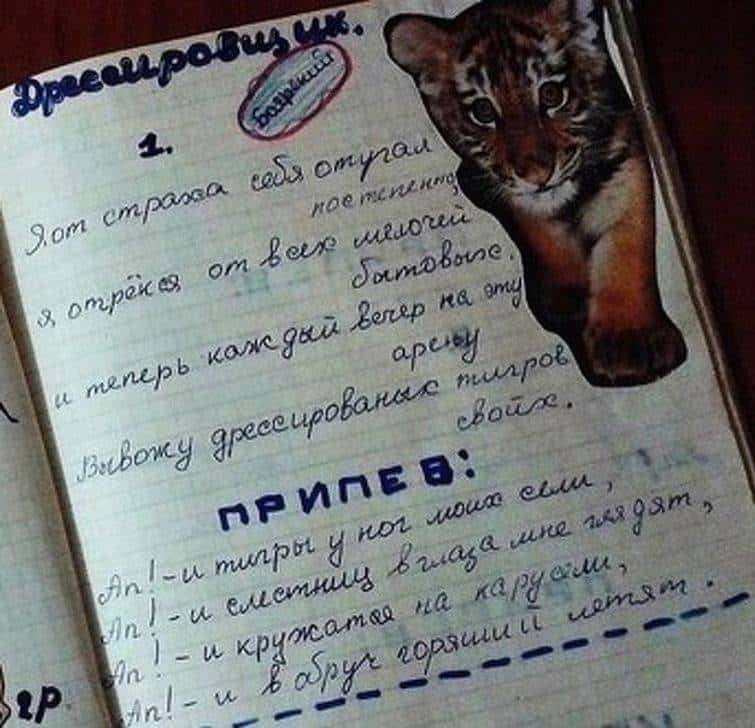 Дрессировщик.
Боярский
1.
Я от страха себя отучал
постепенно
я отрёкся от всех мелочей
бытовых.
и теперь каждый вечер на эту
арену
Вывожу дрессированых тигров
свойх.
ПРИПЕВ:
Ап! - и тигры у ног моих сели,
Ап! - и с лестниц в глаза мне глядят,
Ап! - и кружатся на карусели,
Ап! - и в обруч горящий летят.
гр